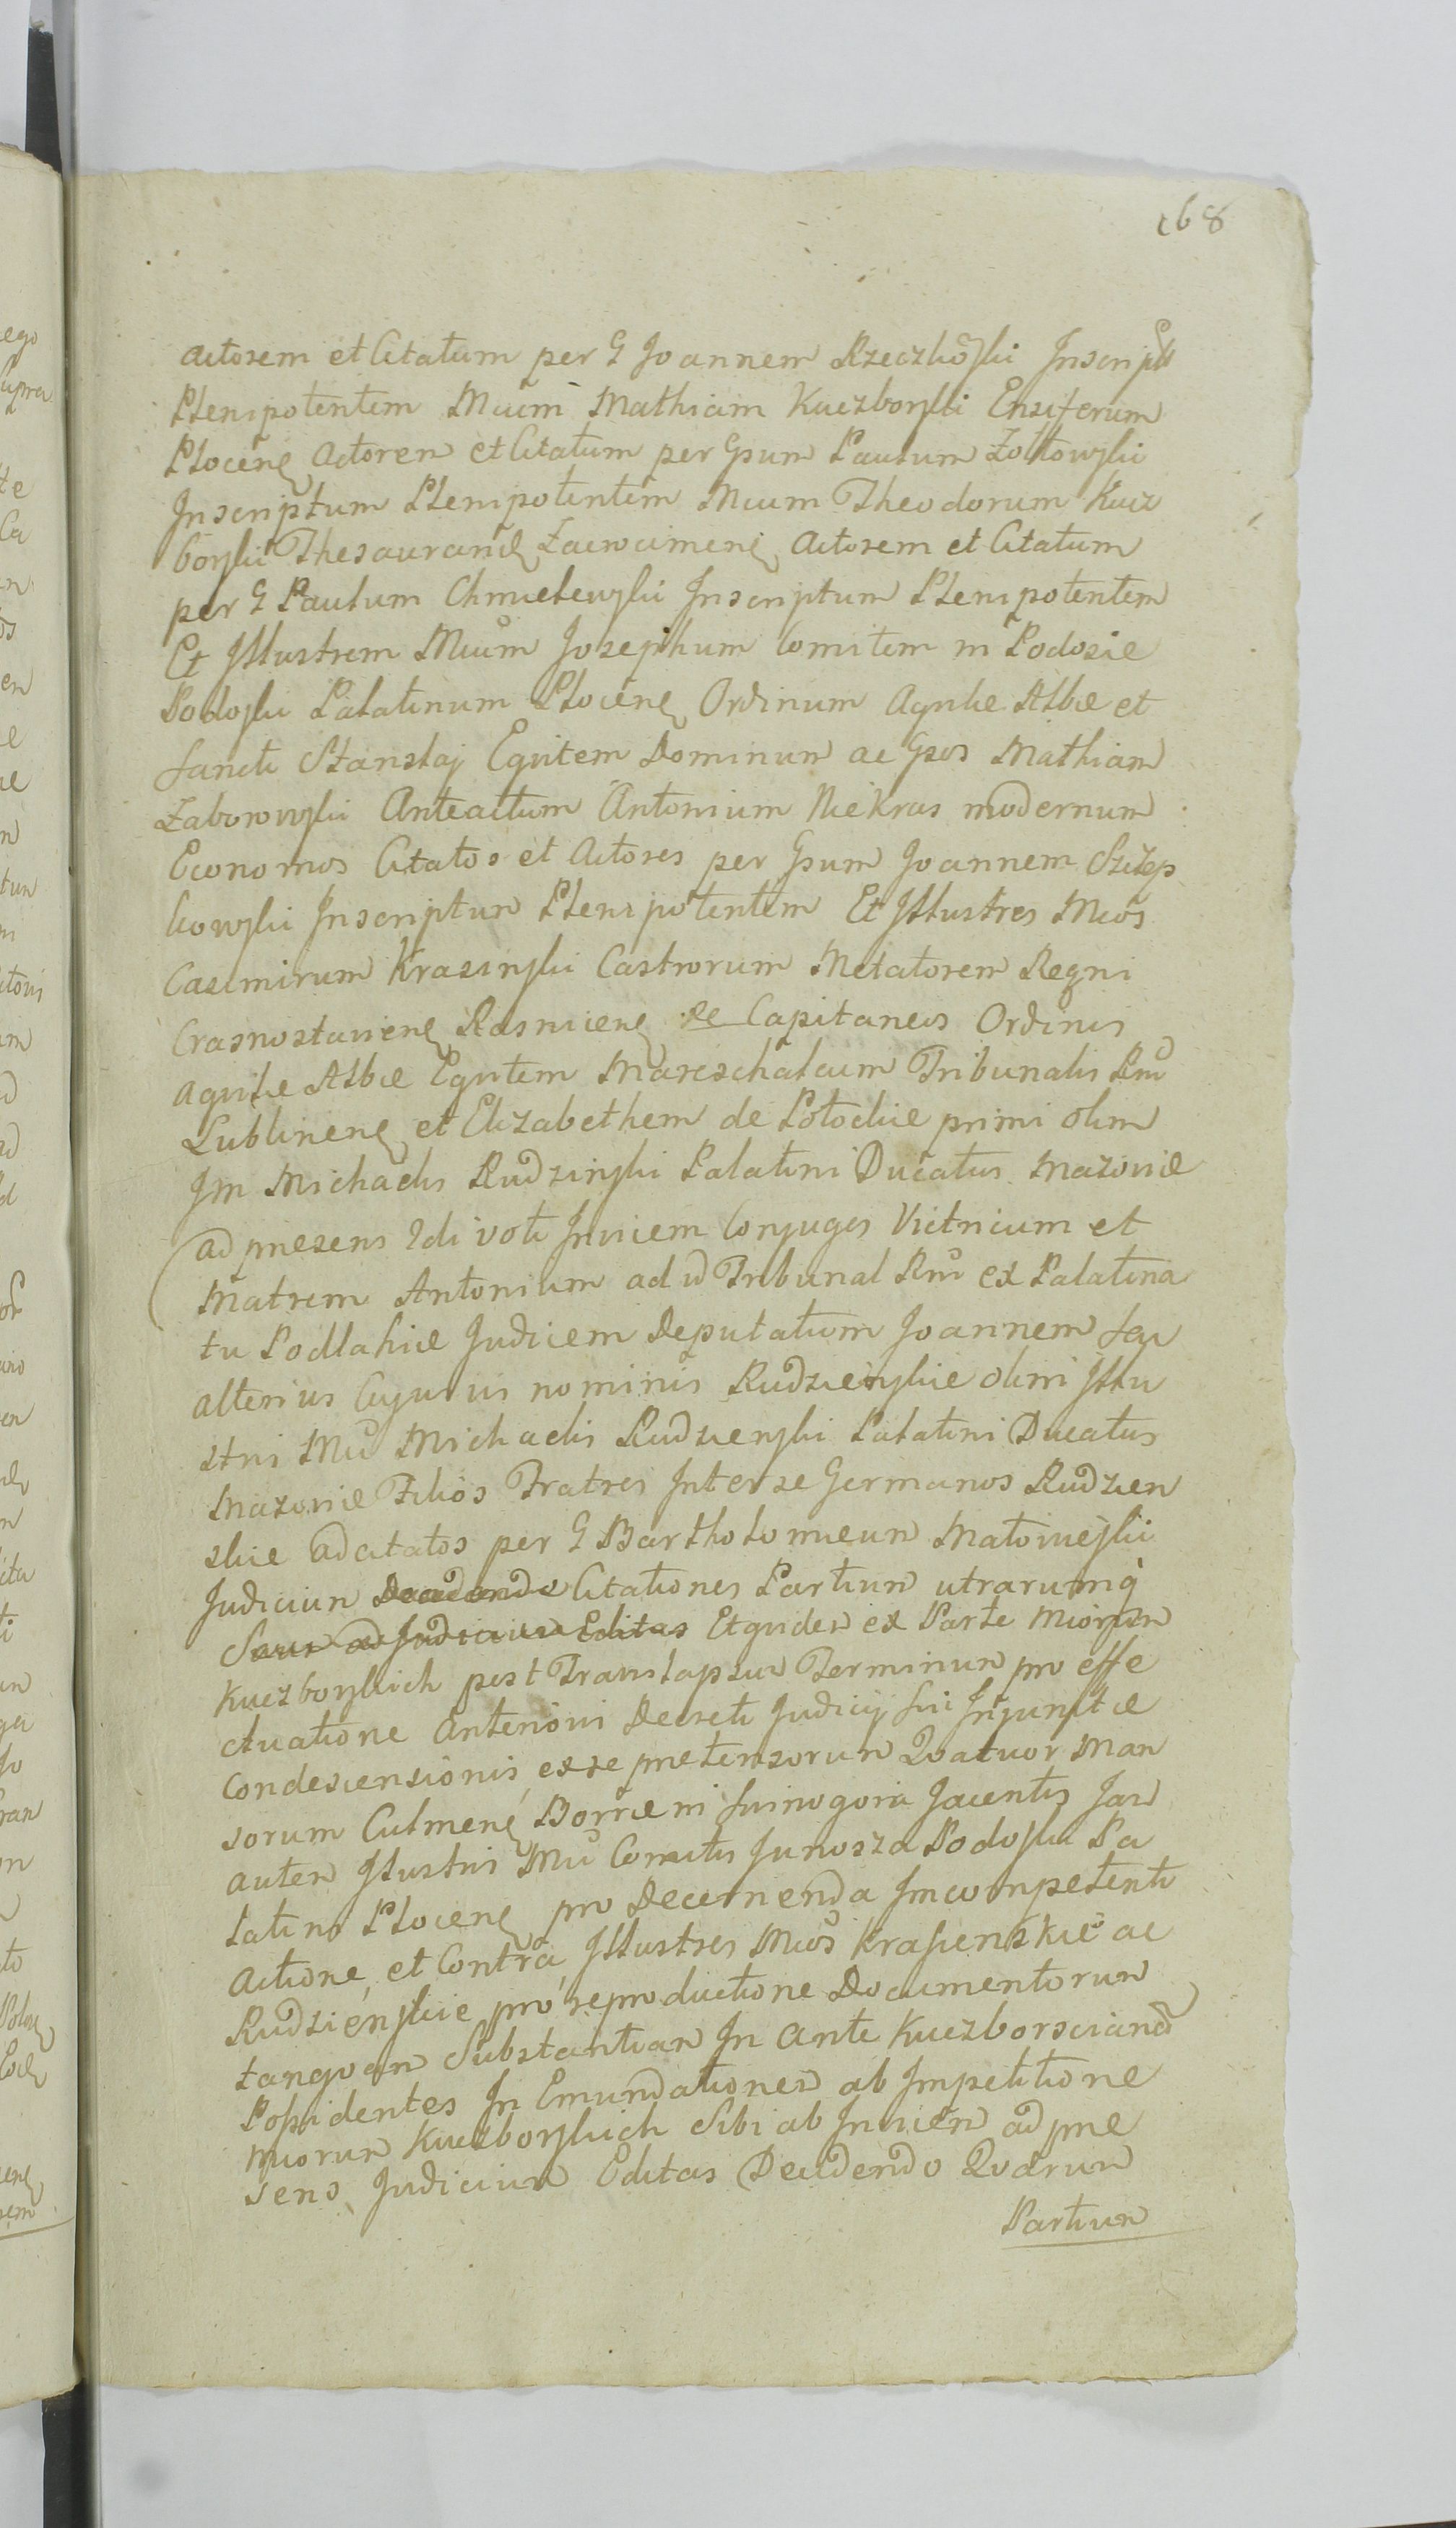 168
actorem et Citatum per G Joannem Rzeczkowski Inscriptū
Plenipotentem Mcum Mathiam Kuczborski Ensiferum
Plocenę Actorem et Citatum per Gsum Paulum Zołtowski
Inscriptum Plenipotentem Mcum Theodorum Kucz
borski Thesaurariū Zacrocimenę Actorem et Citatum
per G Paulum Chmielewski Inscriptum Plenipotentem
Et Illustrem Mcum Josephum Comitem in Podosie
Podoski Palatinum Plocenę Ordinum Aquilæ Albæ et
Sancti Stanislaj Equitem Dominum ac Gsos Mathiam
Zaborowski Anteactum Antonium Niekras modernum
Economos Citatos et Actores per Gsum Joannem Szczep
kowski Inscriptum Plenipotentem Et Illustres Mcos
Casimirum Krasinski Castrorum Metatorem Regni
Crasnostavienę Rasnicenę &c Capitaneos Ordinis
Aquilæ Albæ Equitem Mareschalcum Tribunalis Rni
Lublinenę et Elizabetham de Potockie primi olim
Im Michaelis Rudzinski Palatini Ducatus Mazoviæ
ad præsens 2di voti Invicem Conjuges Vitricum et
Matrem Antonium ad id Tribunal Rni ex Palatina
tu Podlahiæ Judicem Deputatum Joannem seu
alterius Cujusvis nominis Rudzienskie olim Illu
stris Mci Michaelis Rudzienski Palatini Ducatus
Mazoviæ Filios Fratres Inter se Germanos Rudzien
skie adcitatos per G Bartholomæum Matowieski
Judicium Decidendo Citationes Partium utrarumq̃
Suum ad Judicium Editas Et quidem ex Parte Mcorum
Kuczborskich post Translapsum Terminum pro effe
ctuatione Anterioris Decreti Judicij sui Injunctæ
Condescensionis, ex re prætensorum Quatuor Man
sorum Culmenę Borræ ni Swinogora Jacentis Jam
autem Illustris Mci Comitis Junosza Podoski Pa
latini Plocenę pro Decernenda Incompetenti
Actione, et Contra Illustres Mcos Krasienskie ac
Rudzienskie pro reproductione Documentorum
tanquam Substantiam In ante Kuczborsciana
Possidentes In Emundationem ab Impetitione
Mcorum Kuczborskich Sibi ab Invicem ad præ
sens Judicium Editas Decidendo Quarum
Partium